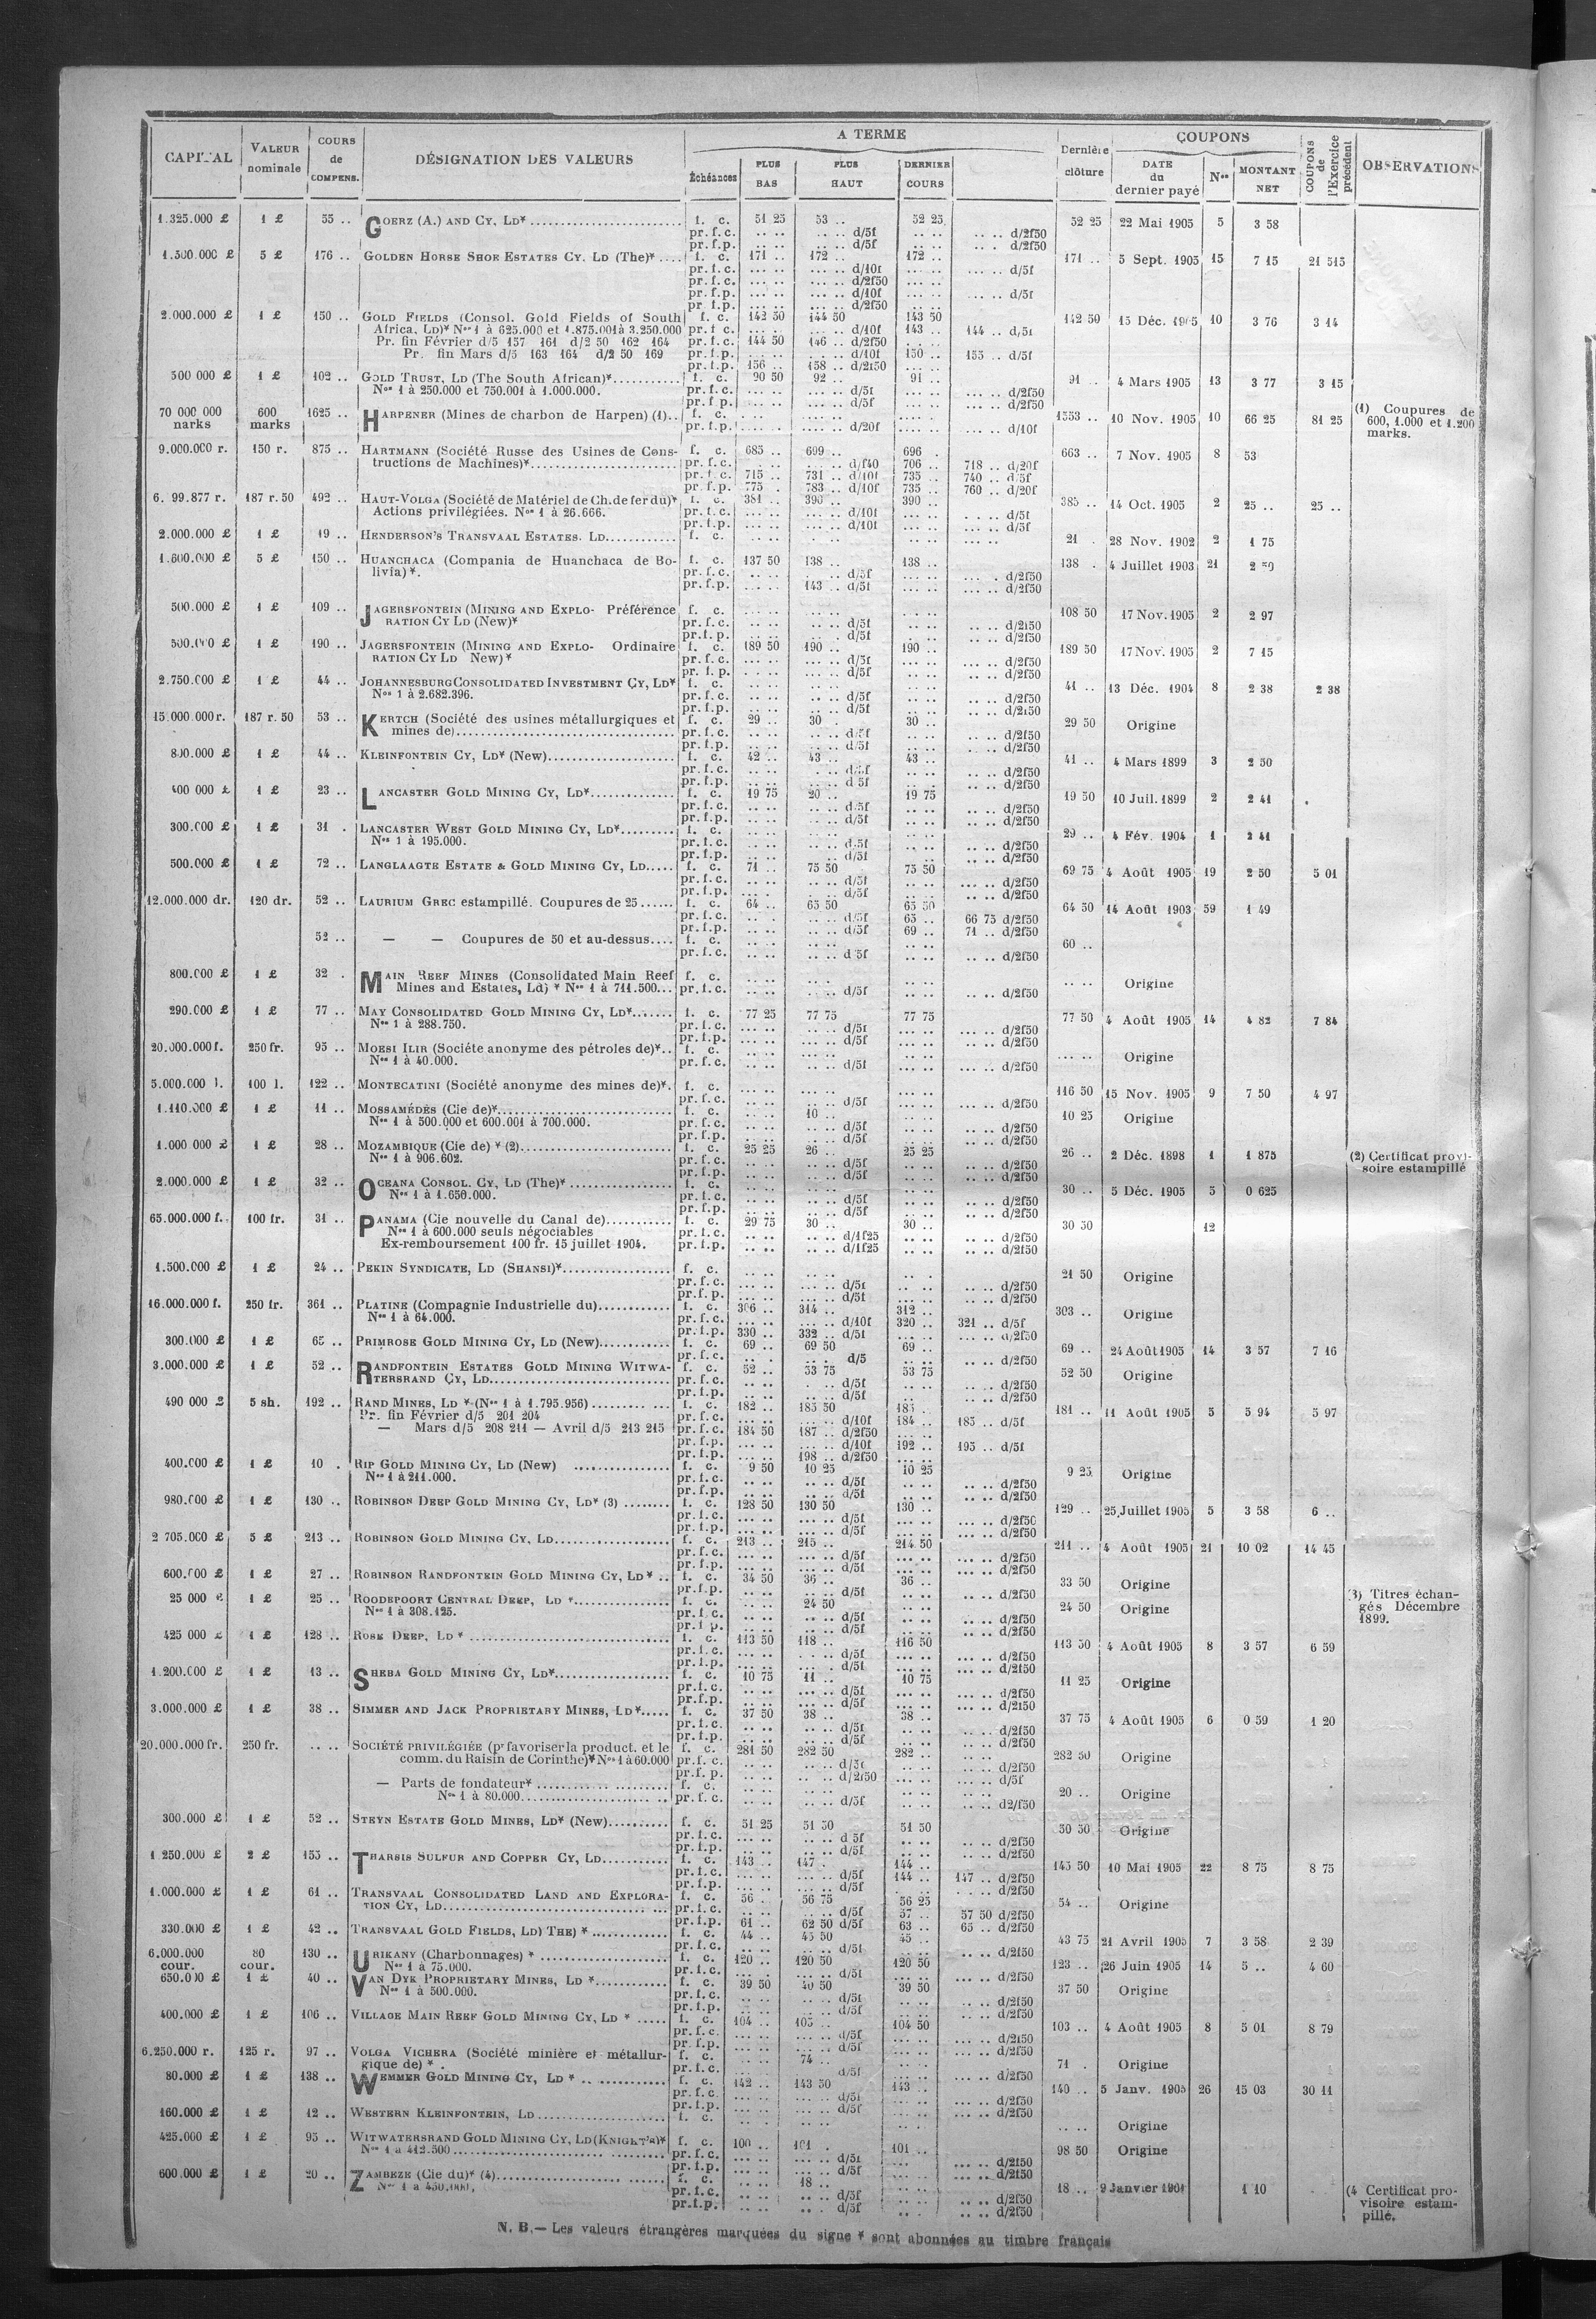 CAPITAL | VALEUR nominale | COURS de COMPENS. | DÉSIGNATION DES VALEURS | A TERME | Échéances | PLUS BAS | PLUS HAUT | DERNIER COURS | Dernière clôture | COUPONS | DATE du dernier payé | Nos | MONTANT NET | COUPONS de l'Exercice précédent | OBSERVATIONS
1.325.000 £ 1 £ 55 .. GOERZ (A.) AND CY, LD* f. c. 51 25 53 .. 52 25 52 25 22 Mai 1905 5 3 58
pr. f. c. .. .. .. .. d/5f .. .. .. .. d/2f50
pr. f. p. .. .. .. .. d/5f .. .. .. . d/2f50
1.500.000 £ 5 £ 176 .. GOLDEN HORSE SHOE ESTATES CY. LD (The)* f. c. 171 .. 172 .. 172 .. 171 .. 5 Sept. 1905 15 7 15 21 515
pr. f. c. ... .. ... .. d/10f ... .. ... .. d/5f
pr. f. c. ... .. ... .. d/2f50 ... ..
pr. f. p. ... .. ... .. d/10f ... .. ... .. d/5f
pr. f. p. ... .. ... .. d/2f50 ... ..
2.000.000 £ 1 £ 150 .. GOLD FIELDS (Consol. Gold Fields of South f. c. 142 50 144 50 143 50 142 50 15 Déc. 1905 10 3 76 3 14
Africa, Ld)* Nos 1 à 625.000 et 1.875.001 à 3.250.000 pr. f. c. d/10f 143 .. 144 .. d/5f
Pr. fin Février d/5 157 161 d/2 50 162 164 pr. f. c. 144 50 146 .. d/2f50
Pr. fin Mars d/5 163 164 d/2 50 169 pr. f. p. d/10f 150 .. 155 .. d/5f
pr. f. p. 156 .. 158 .. d/2f50
500 000 £ 1 £ 102 .. GOLD TRUST, LD (The South African)* f. c. 90 50 92 .. 91 .. 91 .. 4 Mars 1905 13 3 77 3 15
Nos 1 à 250.000 et 750.001 à 1.000.000. pr. f. c. d/5f d/2f50
pr. f. p. d/5f d/2f50
70 000 000 marks 600 marks 1625 .. HARPENER (Mines de charbon de Harpen) (1).. f. c. 1553 .. 10 Nov. 1905 10 66 25 81 25 (1) Coupures de 600, 1.000 et 1.200 marks.
pr. f. p. d/20f d/10f
9.000.000 r. 150 r. 875 .. HARTMANN (Société Russe des Usines de Cons- f. c. 685 .. 699 .. 696 . 663 .. 7 Nov. 1905 8 53
tructions de Machines)* pr. f. c. d/f40 706 .. 718 .. d/20f
pr. f. c. 715 .. 731 .. d/10f 735 .. 740 .. d/5f
pr. f. p. 775 . 783 .. d/10f 735 .. 760 .. d/20f
6. 99.877 r. 187 r. 50 492 .. HAUT-VOLGA (Société de Matériel de Ch. de fer du)* f. c. 381 .. 390 .. 390 .. 385 .. 14 Oct. 1905 2 25 .. 25 ..
Actions privilégiées. Nos 1 à 26.666. pr. f. c. d/10f d/5f
pr. f. p. d/10f d/5f
2.000.000 £ 1 £ 19 .. HENDERSON'S TRANSVAAL ESTATES. LD f. c. 21 . 28 Nov. 1902 2 1 75
1.600.000 £ 5 £ 150 .. HUANCHACA (Compania de Huanchaca de Bo- f. c. 137 50 138 .. 138 .. 138 . 4 Juillet 1903 21 2 50
livia)*. pr. f. c. d/5f d/2f50
pr. f. p. 143 .. d/5f d/2f50
500.000 £ 1 £ 109 .. JAGERSFONTEIN (MINING AND EXPLO- Préférence f. c. 108 50 17 Nov. 1905 2 2 97
RATION CY LD (New)* pr. f. c. d/5f d/2f50
pr. f. p. d/5f d/2f50
500.000 £ 1 £ 190 .. JAGERSFONTEIN (MINING AND EXPLO- Ordinaire f. c. 189 50 190 .. 190 .. 189 50 17 Nov. 1905 2 7 15
RATION CY LD New)* pr. f. c. d/5f d/2f50
pr. f. p. d/5f d/2f50
2.750.000 £ 1 £ 44 .. JOHANNESBURG CONSOLIDATED INVESTMENT CY, LD* f. c. 41 .. 13 Déc. 1904 8 2 38 2 38
Nos 1 à 2.682.396. pr. f. c. d/5f d/2f50
pr. f. p. d/5f d/2f50
15.000.000 r. 187 r. 50 53 .. KERTCH (Société des usines métallurgiques et f. c. 29 .. 30 . 30 .. 29 50 Origine
mines de) pr. f. c. d/5f d/2f50
pr. f. p. d/5f d/2f50
800.000 £ 1 £ 44 .. KLEINFONTEIN CY, LD* (New) f. c. 42 .. 43 .. 43 .. 41 .. 4 Mars 1899 3 2 50
pr. f. c. d/5f d/2f50
pr. f. p. d 5f d/2f50
400 000 £ 1 £ 23 .. LANCASTER GOLD MINING CY, LD* f. c. 19 75 20 .. 19 75 19 50 10 Juil. 1899 2 2 41
pr. f. c. d/5f d/2f50
pr. f. p. d/5f d/2f50
300.000 £ 1 £ 31 . LANCASTER WEST GOLD MINING CY, LD* f. c. 29 .. 4 Fév. 1904 1 2 41
Nos 1 à 195.000. pr. f. c. d/5f d/2f50
pr. f. p. d/5f d/2f50
500.000 £ 1 £ 72 .. LANGLAAGTE ESTATE & GOLD MINING CY, LD f. c. 71 .. 75 50 75 50 69 75 4 Août 1905 19 2 50 5 01
pr. f. c. d/5f d/2f50
pr. f. p. d/5f d/2f50
12.000.000 dr. 120 dr. 52 .. LAURIUM GREC estampillé. Coupures de 25 f. c. 64 .. 65 50 65 50 64 50 14 Août 1903 59 1 49
pr. f. c. d/5f 65 .. 66 75 d/2f50
pr. f. p. d/5f 69 .. 71 .. d/2f50
52 .. — — Coupures de 50 et au-dessus.... f. c. 60 ..
pr. f. c. d 5f d/2f50
800.000 £ 1 £ 32 . MAIN REEF MINES (Consolidated Main Reef f. c. Origine
Mines and Estates, Ld) * Nos 1 à 711.500... pr. f. c. d/5f d/2f50
290.000 £ 1 £ 77 .. MAY CONSOLIDATED GOLD MINING CY, LD* f. c. 77 25 77 75 77 75 77 50 4 Août 1905 14 4 82 7 84
Nos 1 à 288.750. pr. f. c. d/5f d/2f50
pr. f. p. d/5f d/2f50
20.000.000 f. 250 fr. 95 .. MOESI ILIR (Sociéte anonyme des pétroles de)*.. f. c. Origine
Nos 1 à 40.000. pr. f. c. d/5f d/2f50
5.000.000 l. 100 l. 122 .. MONTECATINI (Société anonyme des mines de)*. f. c. 116 50 15 Nov. 1905 9 7 50 4 97
pr. f. c. d/5f d/2f50
1.110.000 £ 1 £ 11 .. MOSSAMÉDÈS (Cie de)* f. c. 10 .. 10 25 Origine
Nos 1 à 500.000 et 600.001 à 700.000. pr. f. c. d/5f d/2f50
pr. f. p. d/5f d/2f50
1.000 000 £ 1 £ 28 .. MOZAMBIQUE (Cie de) * (2) f. c. 25 25 26 .. 25 25 26 .. 2 Déc. 1898 1 1 875 (2) Certificat provi-soire estampillé
Nos 1 à 906.602. pr. f. c. d/5f d/2f50
pr. f. p. d/5f d/2f50
2.000.000 £ 1 £ 32 .. OCEANA CONSOL. CY, LD (The)* f. c. 30 .. 5 Déc. 1905 5 0 625
Nos 1 à 1.650.000. pr. f. c. d/5f d/2f50
pr. f. p. d/5f d/2f50
65.000.000 f. 100 fr. 31 .. PANAMA (Cie nouvelle du Canal de) f. c. 29 75 30 .. 30 .. 30 50 12
Nos 1 à 600.000 seuls négociables pr. f. c. d/1f25 d/2f50
Ex-remboursement 100 fr. 15 juillet 1904. pr. f. p. d/1f25 d/2f50
1.500.000 £ 1 £ 24 .. PEKIN SYNDICATE, LD (SHANSI)* f. c. 21 50 Origine
pr. f. c. d/5f d/2f50
pr. f. p. d/5f d/2f50
16.000.000 f. 250 fr. 361 .. PLATINE (Compagnie Industrielle du) f. c. 306 .. 314 .. 312 .. 303 .. Origine
Nos 1 à 64.000. pr. f. c. d/10f 320 .. 321 .. d/5f
pr. f. p. 330 .. 332 .. d/5f d/2f50
300.000 £ 1 £ 65 .. PRIMROSE GOLD MINING CY, LD (New) f. c. 69 .. 69 50 69 .. 69 .. 24 Août 1905 14 3 57 7 16
pr. f. c. d/5 d/2f50
3.000.000 £ 1 £ 52 .. RANDFONTEIN ESTATES GOLD MINING WITWA- f. c. 52 .. 53 75 53 75 52 50 Origine
TERSRAND CY, LD pr. f. c. d/5f d/2f50
pr. f. p. d/5f d/2f50
490 000 £ 5 sh. 192 .. RAND MINES, LD * (Nos 1 à 1.795.956) f. c. 182 .. 185 50 185 . 181 .. 11 Août 1905 5 5 94 5 97
Pr. fin Février d/5 201 204 pr. f. c. d/10f 184 .. 185 .. d/5f
— Mars d/5 208 211 — Avril d/5 213 215 pr. f. c. 184 50 187 .. d/2f50
pr. f. p. d/10f 192 .. 195 .. d/5f
pr. f. p. 198 .. d/2f50
400.000 £ 1 £ 10 . RIP GOLD MINING CY, LD (New) f. c. 9 50 10 25 10 25 9 25 Origine
Nos 1 à 211.000. pr. f. c. d/5f d/2f50
pr. f. p. d/5f d/2f50
980.000 £ 1 £ 130 .. ROBINSON DEEP GOLD MINING CY, LD* (3) f. c. 128 50 130 50 130 .. 129 .. 25 Juillet 1905 5 3 58 6 ..
pr. f. c. d/5f d/2f50
pr. f. p. d/5f d/2f50
2 705.000 £ 5 £ 213 .. ROBINSON GOLD MINING CY, LD f. c. 213 .. 215 .. 214 50 211 .. 4 Août 1905 21 10 02 14 45
pr. f. c. d/5f d/2f50
pr. f. p. d/5f d/2f50
600.000 £ 1 £ 27 .. ROBINSON RANDFONTEIN GOLD MINING CY, LD * .. f. c. 34 50 36 .. 36 .. 33 50 Origine
pr. f. p. d/5f d/2f50
25 000 £ 1 £ 25 .. ROODEPOORT CENTRAL DEEP, LD * f. c. 24 50 24 50 Origine (3) Titres échan-gés Décembre 1899.
Nos 1 à 308.125. pr. f. c. d/5f d/2f50
pr. f. p. d/5f d/2f50
425 000 £ 1 £ 128 .. ROSE DEEP, LD * f. c. 113 50 118 .. 116 50 113 50 4 Août 1905 8 3 57 6 59
pr. f. c. d/5f d/2f50
pr. f. p. d/5f d/2f50
1.200.000 £ 1 £ 13 .. SHEBA GOLD MINING CY, LD* f. c. 10 75 11 .. 10 75 11 25 Origine
pr. f. c. d/5f d/2f50
pr. f. p. d/5f d/2f50
3.000.000 £ 1 £ 38 .. SIMMER AND JACK PROPRIETARY MINES, LD* f. c. 37 50 38 .. 38 .. 37 75 4 Août 1905 6 0 59 1 20
pr. f. c. d/5f d/2f50
pr. f. p. d/5f d/2f50
20.000.000 fr. 250 fr. .. .. SOCIÉTÉ PRIVILÉGIÉE (pr favoriser la product. et le f. c. 281 50 282 50 282 .. 282 50 Origine
comm. du Raisin de Corinthe)* Nos 1 à 60.000 pr. f. c. d/5f d/2f50
pr. f. p. d/2f50 d/5f
— Parts de fondateur* f. c. 20 .. Origine
Nos 1 à 80.000 pr. f. c. d/5f d2/f50
300.000 £ 1 £ 52 .. STEYN ESTATE GOLD MINES, LD* (New) f. c. 51 25 51 50 51 50 50 50 Origine
pr. f. c. d 5f d/2f50
pr. f. p. d/5f d/2f50
1 250.000 £ 2 £ 155 .. THARSIS SULFUR AND COPPER CY, LD f. c. 143 .. 147 . 144 .. 145 50 10 Mai 1905 22 8 75 8 75
pr. f. c. d/5f 144 .. 147 .. d/2f50
pr. f. p. d/5f d/2f50
1.000.000 £ 1 £ 61 .. TRANSVAAL CONSOLIDATED LAND AND EXPLORA- f. c. 56 . 56 75 56 25 54 .. Origine
TION CY, LD pr. f. c. d/5f 57 .. 57 50 d/2f50
pr. f. p. 61 .. 62 50 d/5f 63 .. 65 .. d/2f50
330.000 £ 1 £ 42 .. TRANSVAAL GOLD FIELDS, LD) THE) * f. c. 44 .. 45 50 45 .. 43 75 21 Avril 1905 7 3 58 2 39
pr. f. c. d/5f d/2f50
6.000.000 cour. 80 cour. 130 .. URIKANY (Charbonnages) * f. c. 120 .. 120 50 120 50 123 .. 26 Juin 1905 14 5 .. 4 60
Nos 1 à 75.000. pr. f. c. d/5f d/2f50
650.000 £ 1 £ 40 .. VAN DYK PROPRIETARY MINES, LD * f. c. 39 50 40 50 39 50 37 50 Origine
Nos 1 à 500.000. pr. f. c. d/5f d/2f50
pr. f. p. d/5f d/2f50
400.000 £ 1 £ 106 .. VILLAGE MAIN REEF GOLD MINING CY, LD * f. c. 104 .. 105 .. 104 50 103 .. 4 Août 1905 8 5 01 8 79
pr. f. c. d/5f d/2f50
pr. f. p. d/5f d/2f50
6.250.000 r. 125 r. 97 .. VOLGA VICHERA (Société minière et métallur- f. c. 74 .. 71 . Origine
gique de) * . pr. f. c. d/5f d/2f50
80.000 £ 1 £ 138 .. WEMMER GOLD MINING CY, LD * f. c. 142 .. 143 50 143 .. 140 .. 5 Janv. 1905 26 15 03 30 11
pr. f. c. d/5f d/2f50
pr. f. p. d/5f d/2f50
160.000 £ 1 £ 12 .. WESTERN KLEINFONTEIN, LD f. c. Origine
425.000 £ 1 £ 95 .. WITWATERSRAND GOLD MINING CY, LD (KNIGHT'S)* f. c. 100 .. 101 . 101 .. 98 50 Origine
Nos 1 à 412.500 pr. f. c. d/5f d/2f50
pr. f. p. d/5f d/2f50
600.000 £ 1 £ 20 .. ZAMBEZE (Cie du)* (4) f. c. 18 .. 18 .. 9 Janvier 1901 1 10 (4 Certificat pro-visoire estam-pillé.
Nos 1 à 450.000. pr. f. c. d/5f d/2f50
pr. f. p. d/5f d/2f50
N. B.— Les valeurs étrangères marquées du signe * sont abonnées au timbre français